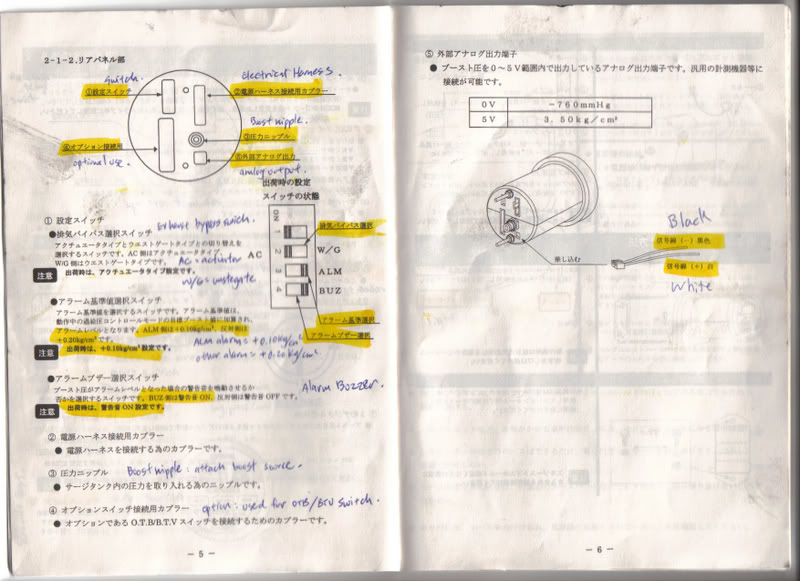 2-1-2.リアパネル部
switch.
Electrical Harness.
①設定スイッチ
②電源ハーネス接続用カプラー
Boost nipple.
③圧力ニップル
④オプション接続用
optional use.
⑤外部アナログ出力
analog output.
出荷時の設定
スイッチの状態
ON
1
2
3
4
排気バイパス選択
AC
W/G
ALM
BUZ
アラーム基準選択
アラームブザー選択
① 設定スイッチ
Exhaust bypass switch.
●排気バイパス選択スイッチ
アクチュエータタイプとウエストゲートタイプとの切り替えを
選択するスイッチです。AC側はアクチュエータタイプ、
W/G側はウエストゲートタイプです。
AC = actuator
W/G = wastegate
注意
出荷時は、アクチュエータタイプ設定です。
●アラーム基準値選択スイッチ
アラーム基準値を選択するスイッチです。アラーム基準値は、
動作中の過給圧コントロールモードの目標ブースト値に加算され、
アラームレベルとなります。ALM側は+0.10kg/cm²、反対側は
+0.20kg/cm²です。
ALM alarm = +0.10kg/cm²
other alarm = +0.20kg/cm²
注意
出荷時は、+0.10kg/cm²設定です。
●アラームブザー選択スイッチ
Alarm Buzzer.
ブースト圧がアラームレベルとなった場合の警告音を鳴動させるか
否かを選択するスイッチです。BUZ側は警告音ON、反対側は警告音OFFです。
注意
出荷時は、警告音ON設定です。
② 電源ハーネス接続用カプラー
● 電源ハーネスを接続する為のカプラーです。
③ 圧力ニップル
Boost nipple: attach boost source.
● サージタンク内の圧力を取り入れる為のニップルです。
④ オプションスイッチ接続用カプラー
option: used for OTB/BTV switch.
● オプションであるO.T.B/B.T.Vスイッチを接続するためのカプラーです。
― 5 ―
⑤ 外部アナログ出力端子
● ブースト圧を0～5V範囲内で出力しているアナログ出力端子です。汎用の計測機器等に
接続が可能です。
0V －760mmHg
5V 3.50kg/cm²
Black
信号線(－)黒色
差し込む
信号線(+)白
White
― 6 ―